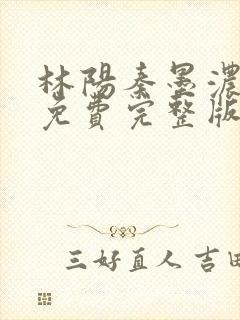 林陽秦墨濃
免費完整版
三好直人 吉田